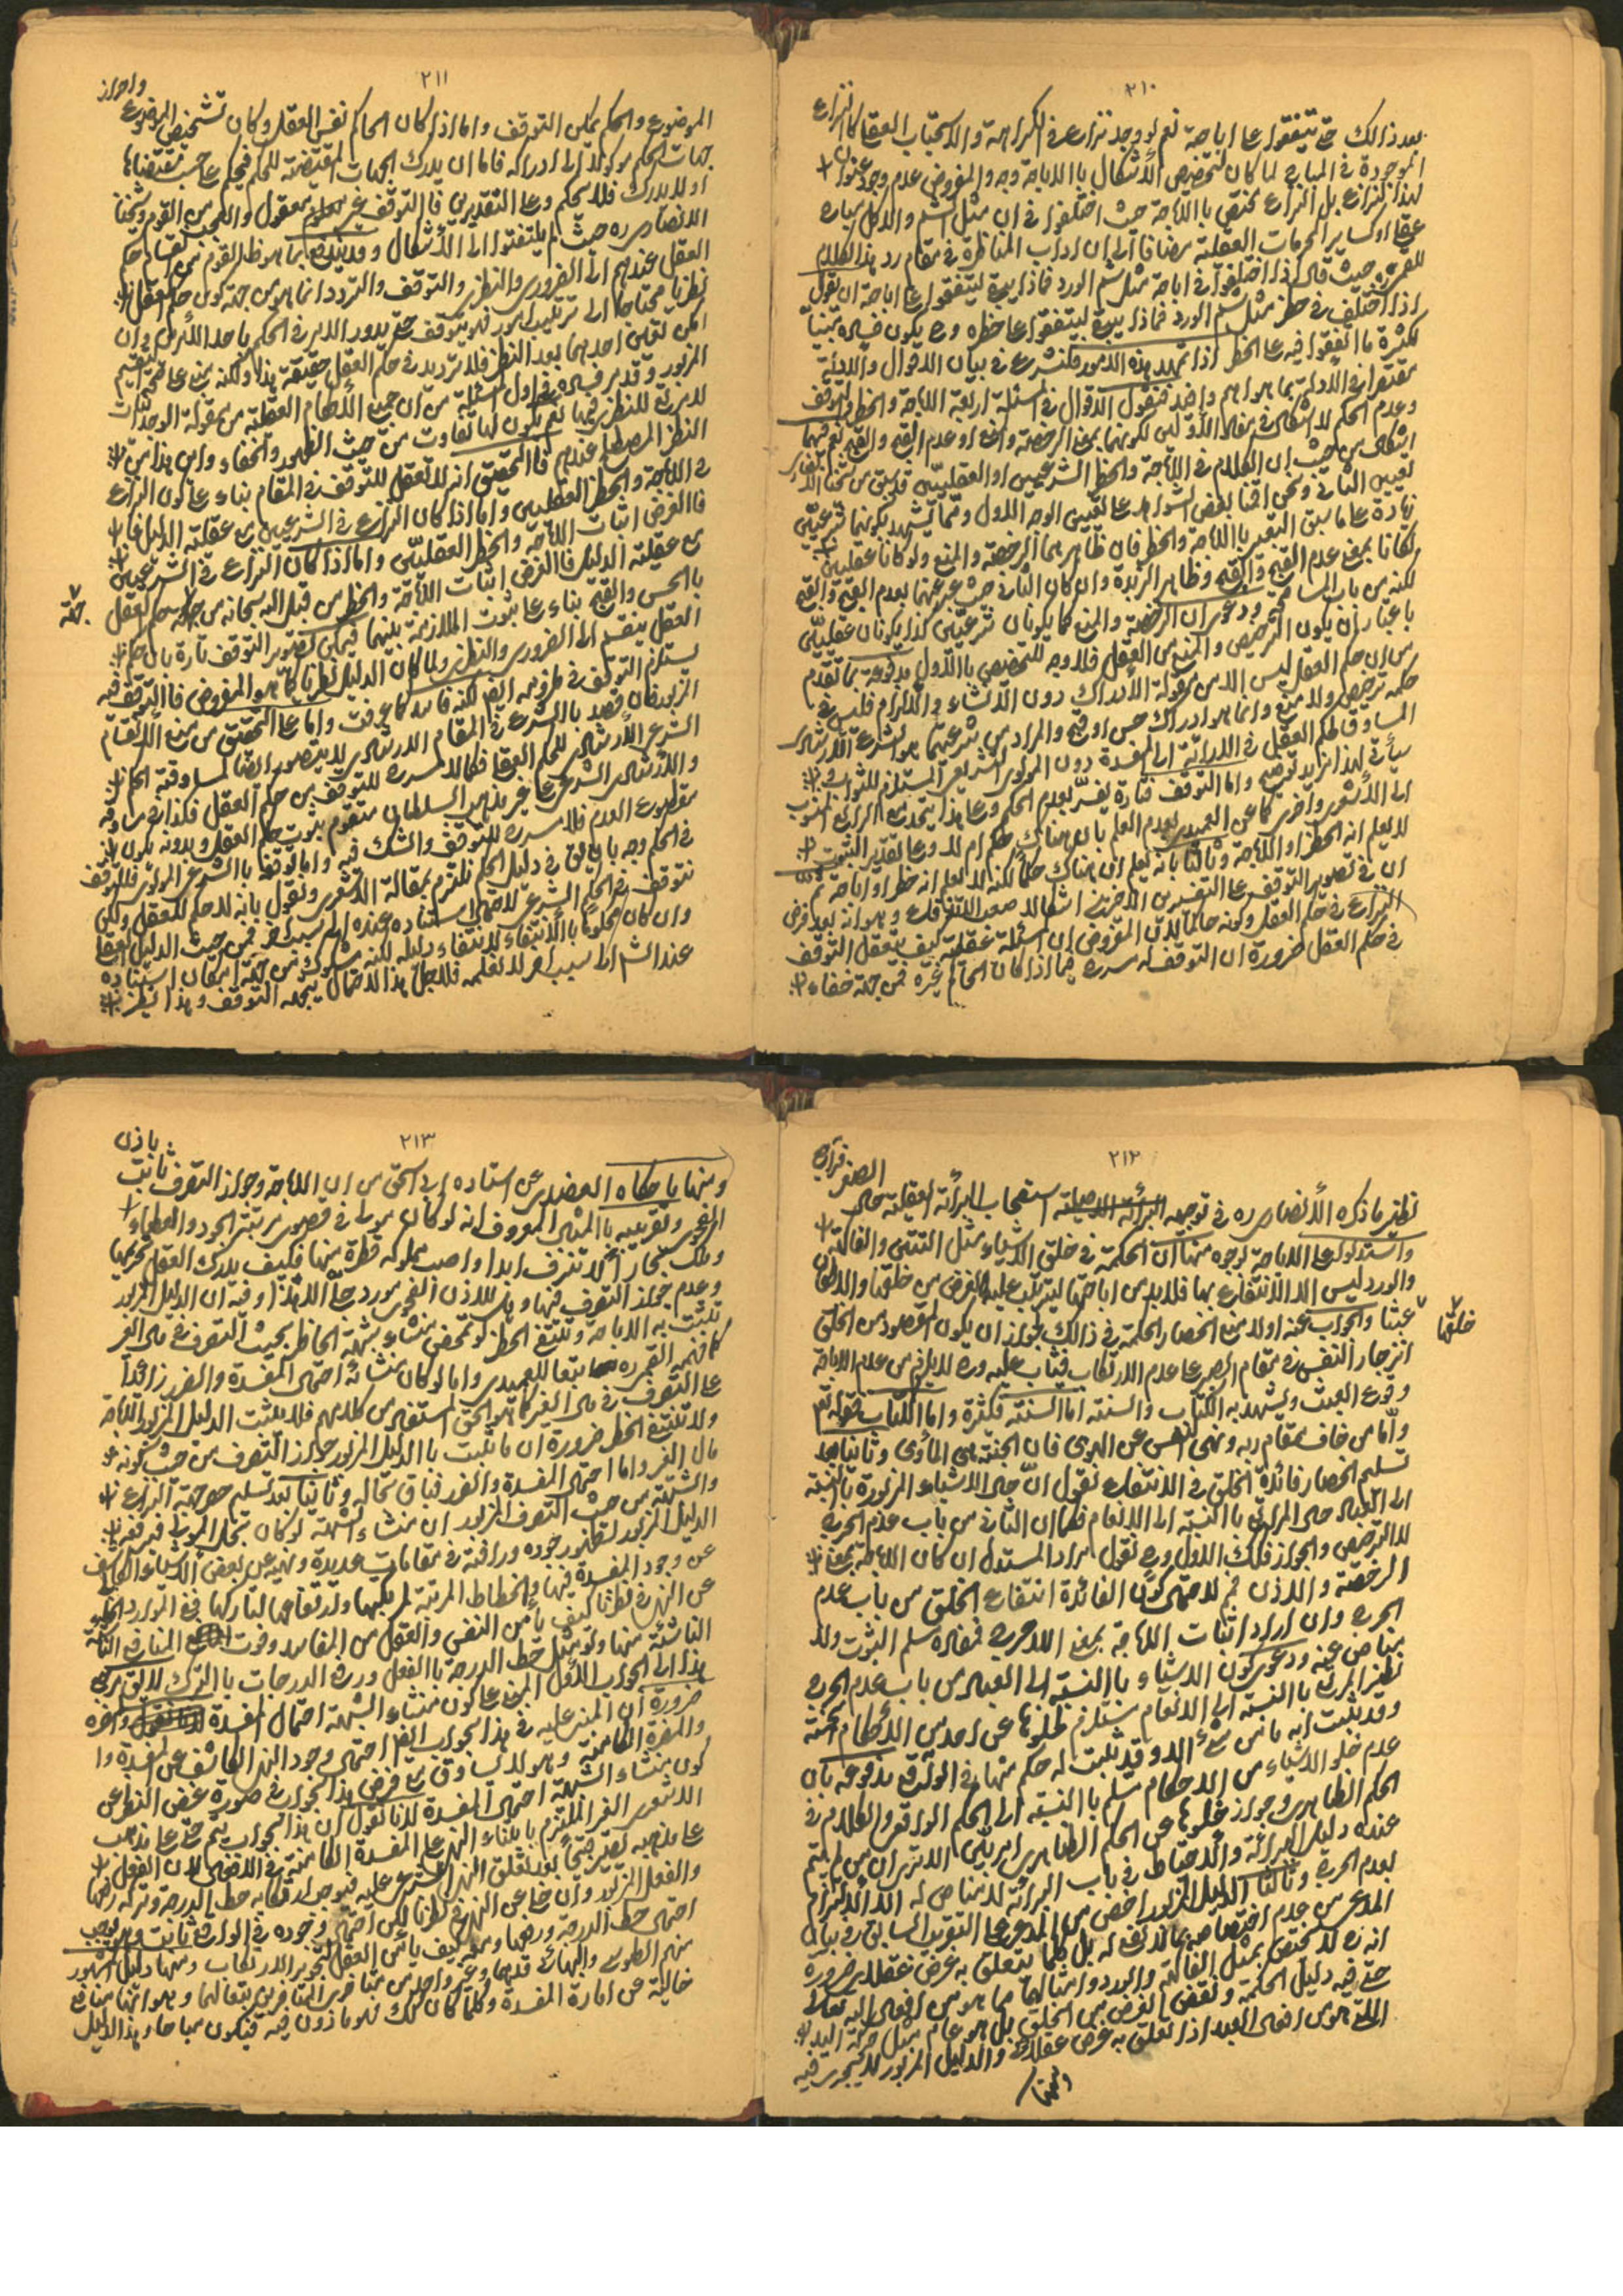 ٢١٠
بعد ذالك حتى يتفقوا على اباحة نعم لو وجد نزاع في الكراهة والاستحباب العقلى كالنزاع
الموجودة في المباح لما كان لتخصيص الأشكال باالاباحة وجه والمفروض عدم وجود عنوان
لهذا النزاع بل النزاع مختص باالاباحة حيث اختلفوا في ان مثل الشم والاكل مباح
عقلى او كساير المحرمات العقلية مضافا الى ان اداب المناظرة في مقام رد هذا الكلام
حيث قال اذا اختلفوا في اباحة مثل شم الورد فماذا يبقى ليتفقوا على اباحة ان يقول
اذا اختلف في حظر مثل شم الورد فماذا يبقى ليتفقوا على حظره وح يكون فساده مبينا
لكثرة ما اتفقوا فيه على الحظر اذا تمهد هذه الامور فلنشرع في بيان الاقوال والادلة
مقتصرا في الأدلة بما هو اهم واخذ فنقول الاقوال في المسئلة اربعة الاباحة والحظر والتوقف
وعدم الحكم لا اشكال في مغايرة الأولين لكونهما بمعنى الرخصة والمنع او عدم القبح والقبح نعم فيهما
اشكال من حيث ان الكلام في الاباحة والحظر الشرعيين او العقليين قد سبق من شيخنا الانصارى
تعيين الثاني ونحن اقمنا بعض الشواهد على تعيين الوجه الاول ومما يشهد بكونهما شرعيين
زيادة على ما سبق التعبير باالاباحة والحظر فان ظاهرهما الرخصة والمنع ولو كانا عقليين
لكانا بمعنى عدم القبح والقبح وظاهر الزبدة وان كان الثاني حيث عبر عنهما بعدم القبح والقبح
لكنه من باب المسامحة ودعوى ان الرخصة والمنع كما يكونان شرعيين كذا يكونان عقليين
باعتبار ان يكون الترخيص والمنع من العقل فلا وجه للتخصيص باالاول مدفوعة بما تقدم
من ان حكم العقل ليس الا من مقولة الأدراك دون الانشاء والالزام فليس في
حكمه ترخيص ولا منع وانما هو ادراك حسن او قبح والمراد من شرعيتهما هو الشرع الارشادى
المساوق لحكم العقل في الدرائة الى المفسدة دون المولوى التشريعى المستلزم للثواب و
سيأتى لهذا مزيد توضيح واما التوقف فتارة يفسر بعدم الحكم وعلى هذا يتحد مع الرابع المنسوب
الى الأشعرى واخرى كما عن العميدى بعدم العلم بان هناك حكم ام لا وعلى تقدير الثبوت
لا يعلم انه الحظر او الاباحة وثالثا بانه يعلم ان هناك حكما لكنه لا يعلم انه حظر او اباحة ثم
ان في تصوير التوقف على التفسيرين الاخرين اشكالا صعب التفكك وهو انه بعد فرض
النزاع في حكم العقل وكونه حاكما لان المفروض ان المسئلة عقلية كيف يتعقل التوقف
في حكم العقل ضرورة ان التوقف له مسرح فيما اذا كان الحاكم غيره فمن جهة خفاء
٢١١
واحراز
الموضوع والحكم يمكن التوقف واما اذا كان الحاكم نفس العقل وكان تشخيص الموضوع
جهات الحكم موكولا الى ادراكه فاما ان يدرك الجهات المقتضية للحكم فيحكم على حسب مقتضاها
او لا يدرك فلا يحكم وعلى التقديرين فا التوقف غير معقول والعجب من القوم وشيخنا
الانصارى ره حيث لم يلتفتوا الى الأشكال وقد يندفع بما هو ظ القوم من انقسام حكم
العقل عندهم الى الضرورى والنظرى والتوقف والتردد انما هو من جهة كون حكم العقل
نظريا محتاجا الى ترتيب امور فهو يتوقف حتى يدور الامر في الحكم باحد الأمرين وان
امكن تعيين احدهما بعد النظر فلا ترديد في حكم العقل حقيقة هذا ولكنه مبنى على صحة التقسيم
المزبور وقد مر فساده في اول المسئلة من ان جميع الأحكام العقلية من مقولة الوجدانيات
لا مسرح للنظر فيها نعم يكون لها تفاوت من حيث الظهور والخفاء واين هذا من
النظر المصطلح عندهم فا التحقيق انه لا تعقل للتوقف في المقام بناء على كون النزاع
في الاباحة والحظر العقليين واما اذا كان النزاع في الشرعيين مع عقلية الدليل فا
فا الغرض اثبات الاباحة والحظر العقليين واما اذا كان النزاع في الشرعيين
مع عقلية الدليل فا الغرض اثبات الاباحة والحظر من قبل الله سبحانه من جهة حكم العقل
جهة
باالحسن والقبح بناء على ثبوت الملازمة بينهما فيمكن تصوير التوقف تارة بان حكم
العقل ينقسم الى الضرورى والنظرى ولما كان الدليل نظريا كما هو المفروض فا التوقف فيه
يستلزم التوقف في ملزومه ايضا لكنه فاسد كما عرفت واما على التحقيق من منع الانقسام
المزبور فان قصد باالشرع في المقام الارشادى لا يتصور ايضا لمساوقية الحكم
الشرع الأرشادى للحكم العقلى فكما لا مسرح للتوقف في حكم العقل فكذا في مساوقه
والأرشادى الشرعى على غير مذهب السلطان متقوم بثبوت حكم العقل وبدونه يكون
مقطوع العدم فلا مسرح للتوقف والشك فيه واما لو قصد باالشرع المولوى فللتوقف
في الحكم وجه بان يق في دليل الحكم نلتزم بمقالة الاشعرى ونقول بانه لا حكم للعقل ولكن
نتوقف في الحكم الشرعى لاحتمال استناده عنده الى سبب اخر فمن حيث الدليل العقلى
وان كان محكوما باالأنتفاء لانتفاء دليله لكنه مشكوك من جهة امكان استناده
عند الش الى سبب اخر لا نعلمه فلاجل هذا الاحتمال يتجه التوقف وهذا نظير
٢١٢
الصغر فراجع
نظير ما ذكره الأنصارى ره في توجيه استصحاب البرائة العقلية حال
واستدلوا على الاباحة بوجوه منها ان الحكمة في خلق الاشياء مثل التتن والفاكهة
والورد ليس الا الأنتفاع بها فلا بد من اباحتها ليترتب عليه الغرض من خلقتها والا لكان
خلقها
عبثا والجواب عنه اولا منع انحصار الحكمة في ذالك لجواز ان يكون المقصود من الخلق
انزجار النفس في مقام الصبر على عدم الارتكاب فيثاب عليه وح لا يلزم من عدم الاباحة
وقوع العبث ويشهد به الكتاب والسنة اما السنة فكثيرة واما الكتاب فقوله تعم
واما من خاف مقام ربه ونهى النفس عن الهوى فان الجنة هى المأوى وثانيا بعد
تسليم انحصار فائدة الخلق في الانتفاع نقول ان حال الاشياء المزبورة باالنسبة
الى العباد حال المراتع باالنسبة الى الانعام فكما ان الثانى من باب عدم الحرج
لا الترخيص والجواز فكذلك الاول وح نقول مراد المستدل ان كان الاباحة بمعنى
الرخصة والاذن فم لاحتمال كون الفائدة انتفاع الخلق من باب عدم
الحرج وان اراد اثبات الاباحة بمعنى اللاحرج فمفاده مسلم الثبوت ولا
مناص عنه ودعوى كون الاشياء باالنسبة الى العباد من باب عدم الحرج
نظير المراتع باالنسبة الى الانعام مستلزم لخلوها عن احد من الأحكام الخمسة
وقد يثبت انه ما من شئ الا وقد ثبت له حكم منها في الواقع مدفوعة بان
عدم خلو الاشياء من الاحكام مسلم باالنسبة الى الحكم الواقعى والكلام في
الحكم الظاهرى وجواز خلوها عن الحكم الظاهرى امر بين الا ترى ان من لم يتم
عنده دليل البرائة والاحتياط في باب البرائة لا مناص له الا الالتزام
بعدم الحرج وثالثا الدليل المزبور اخص من المدعى على التقرير السابق وبيان
المدعى من عدم اختصاصه بما لا نفع له بل كلما يتعلق به غرض عقلائى ضرورة
انه ح لا يختص بمثل الفاكهة والورد وامثالهما مما هو من افعال الله تعالى
حتى فيه دليل الحكمة ونقض الغرض من الخلق بل هو عام لمثل حركة اليد
التى هو من افعال العبد اذا تعلق به غرض عقلائى والدليل المزبور لا يجرى فيه
ومنها
٢١٣
باذن
ومنها ما حكاه العضدى عن استاده ابى اسحق من ان الاباحة وجواز التصرف ثابت
الفحوى وتقريبه باالمثال المعروف انه لو كان مولى في قصور مرتبة الجود والعطاء
وملك بحارا لا تنزف ابدا واصب مملوكه قطرة منها فكيف يدرك العقل تحريمها
وعدم جواز التصرف فيها وهل للاذن الفحوى مورد اجلى من هذا وفيه ان الدليل المزبور
يثبت به الاباحة وينتفى الحظر لو تمحض منشاء شبهة الحاظر بحيث التصرف في مال الغير
كما فهمه القمى ره تبعا للعميدى واما لو كان منشائه احتمال المفسدة والضرر زائدا
على التصرف في مال الغير كما هو الحق المستفاد من كلامهم فلا يثبت الدليل المزبور الاباحة
ولا تنتفى الحظر ضرورة ان ما يثبت باالدليل المزبور جواز التصرف من حيث كونه
مال الغير واما احتمال المفسدة والضرر فباق بحاله وثانيا بعد تسليم حصر جهة النزاع
والشبهة من حيث التصرف المزبور ان منشاء الشبهة لو كان بخل المولى فيرتفع
الدليل المزبور لظهور جوده ورافته في مقامات عديدة ونهيه عن بعض الاشياء الكاشف
عن وجود المفسدة فيها وانحطاط المرتبة لمرتكبها وارتفاعها لتاركها ففى الموارد الخالية
عن النهى في نظرنا كيف يأمن النفس والعقل من المفاسد وفوت المنافع التامة
الناشئة منها ولو مثل حط الدرجة باالفعل ورفع الدرجات باالترك لا يق مرجع
هذا الى الجواب الأول المبنى على كون منشاء الشبهة احتمال المفسدة واخره
ضرورة ان المبنى عليه في هذا الجواب ايضا احتمال وجود النهى الكاشف عن المفسدة وا
والمضرة الكامنة وما هو الا يساوق مع فرض هذا الجواب في صورة غض النظر عن
كون منشاء الشبهة احتمال المفسدة لانا نقول ان هذا الجواب يتم حتى على مذهب
الاشعرى الغير الملتزم بابتناء النهى على المفسدة الكامنة في الافعال لان الفعل
على مذهبه يصير قبيحا بعد تعلق النهى الشرعى عليه فيوجب ارتكابه حط الدرجة وتركه رفعها
والفعل المزبور وان خلى عن النهى في نظرنا لكن احتمال وجوده في الواقع ثابت وهو يوجب
احتمال حط الدرجة ورفعها ومعه كيف يأمن العقل لتجويز الارتكاب ومنها دليل المشهور
منهم الطوسى والبهائى قدهما وغير واحد من متأخرى المتأخرين بتغالهما وهو انها منافع
خالية عن امارة المفسدة وكلما كان كذلك فهو ماذون فيه فيكون مباحا وهذا الدليل